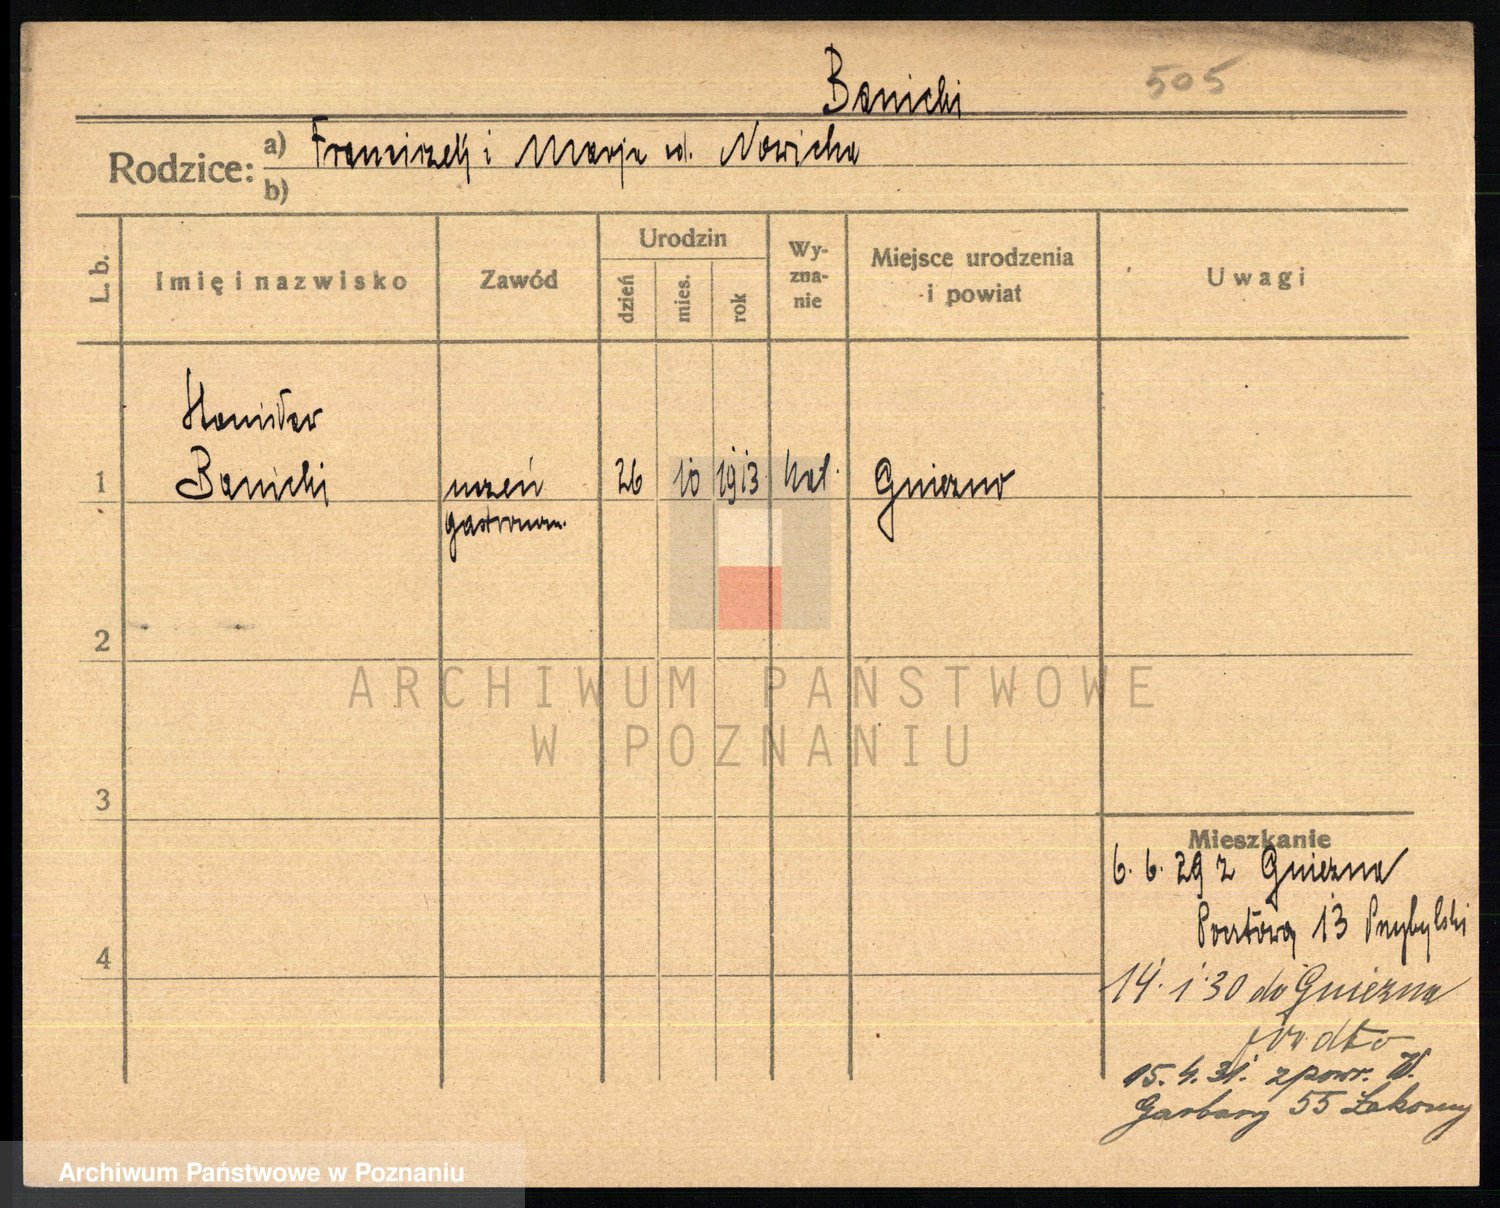 Banicki 505
Rodzice: a) Franciszek i Marja ud. Nowicka
b)
L. b. Imię i nazwisko Zawód Urodzin dzień mies. rok Wy-zna-nie Miejsce urodzenia i powiat Uwagi
Stanisław
1 Banicki uczeń 26 10 1913 kat. Gniezno
gastronom.
2
ARCHIWUM PAŃSTWOWE
W POZNANIU
3
Mieszkanie
6. 6. 29 z Gniezna
Pocztowa 13 Przybylski
4
14. 1. 30 do Gniezna
15. 4. 31. z powr. W.
Garbary 55
Archiwum Państwowe w Poznaniu